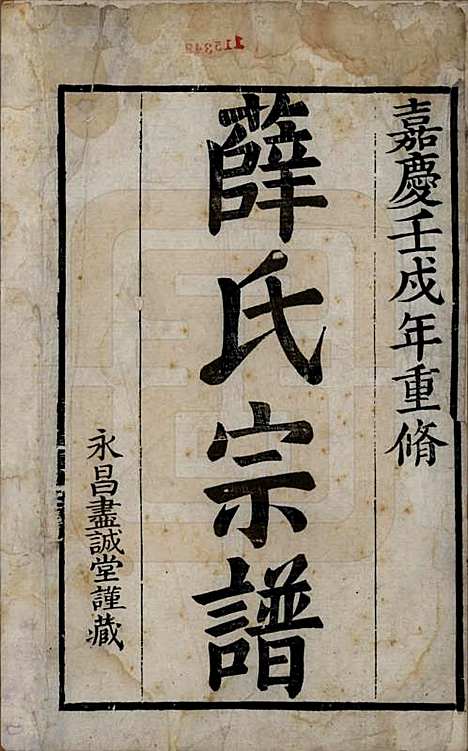 嘉慶壬戌年重脩
薛氏宗譜
永昌盡誠堂謹藏